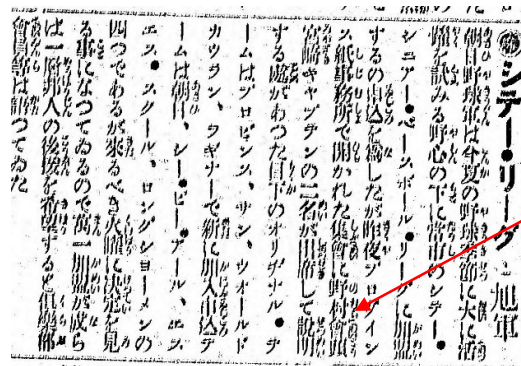 シテー・リーグと旭軍
朝日野球軍は今夏の野球季節に大に活
躍を試みる野心の下に當市のシテー・
シニアー・ベースボール・リーグに加盟
するの申込を爲したが昨夜プロヴイン
ス紙事務所で開かれた集會に野付會頭
宮崎キャプテンの二名が出席して說明
する處があつた目下のオリヂナル・チ
ームはプロビンス、サン、ウオールド
カウアン、ウキナーで新に加入申込チ
ームは朝日、シー・ピー・アール、
ロングショーメンの
四つであるが來るべき火曜に決定を見
る事になつてゐるので萬一加盟が成ら
ば一層邦人の後援を希望すると俱樂部
會員等は語つてゐた